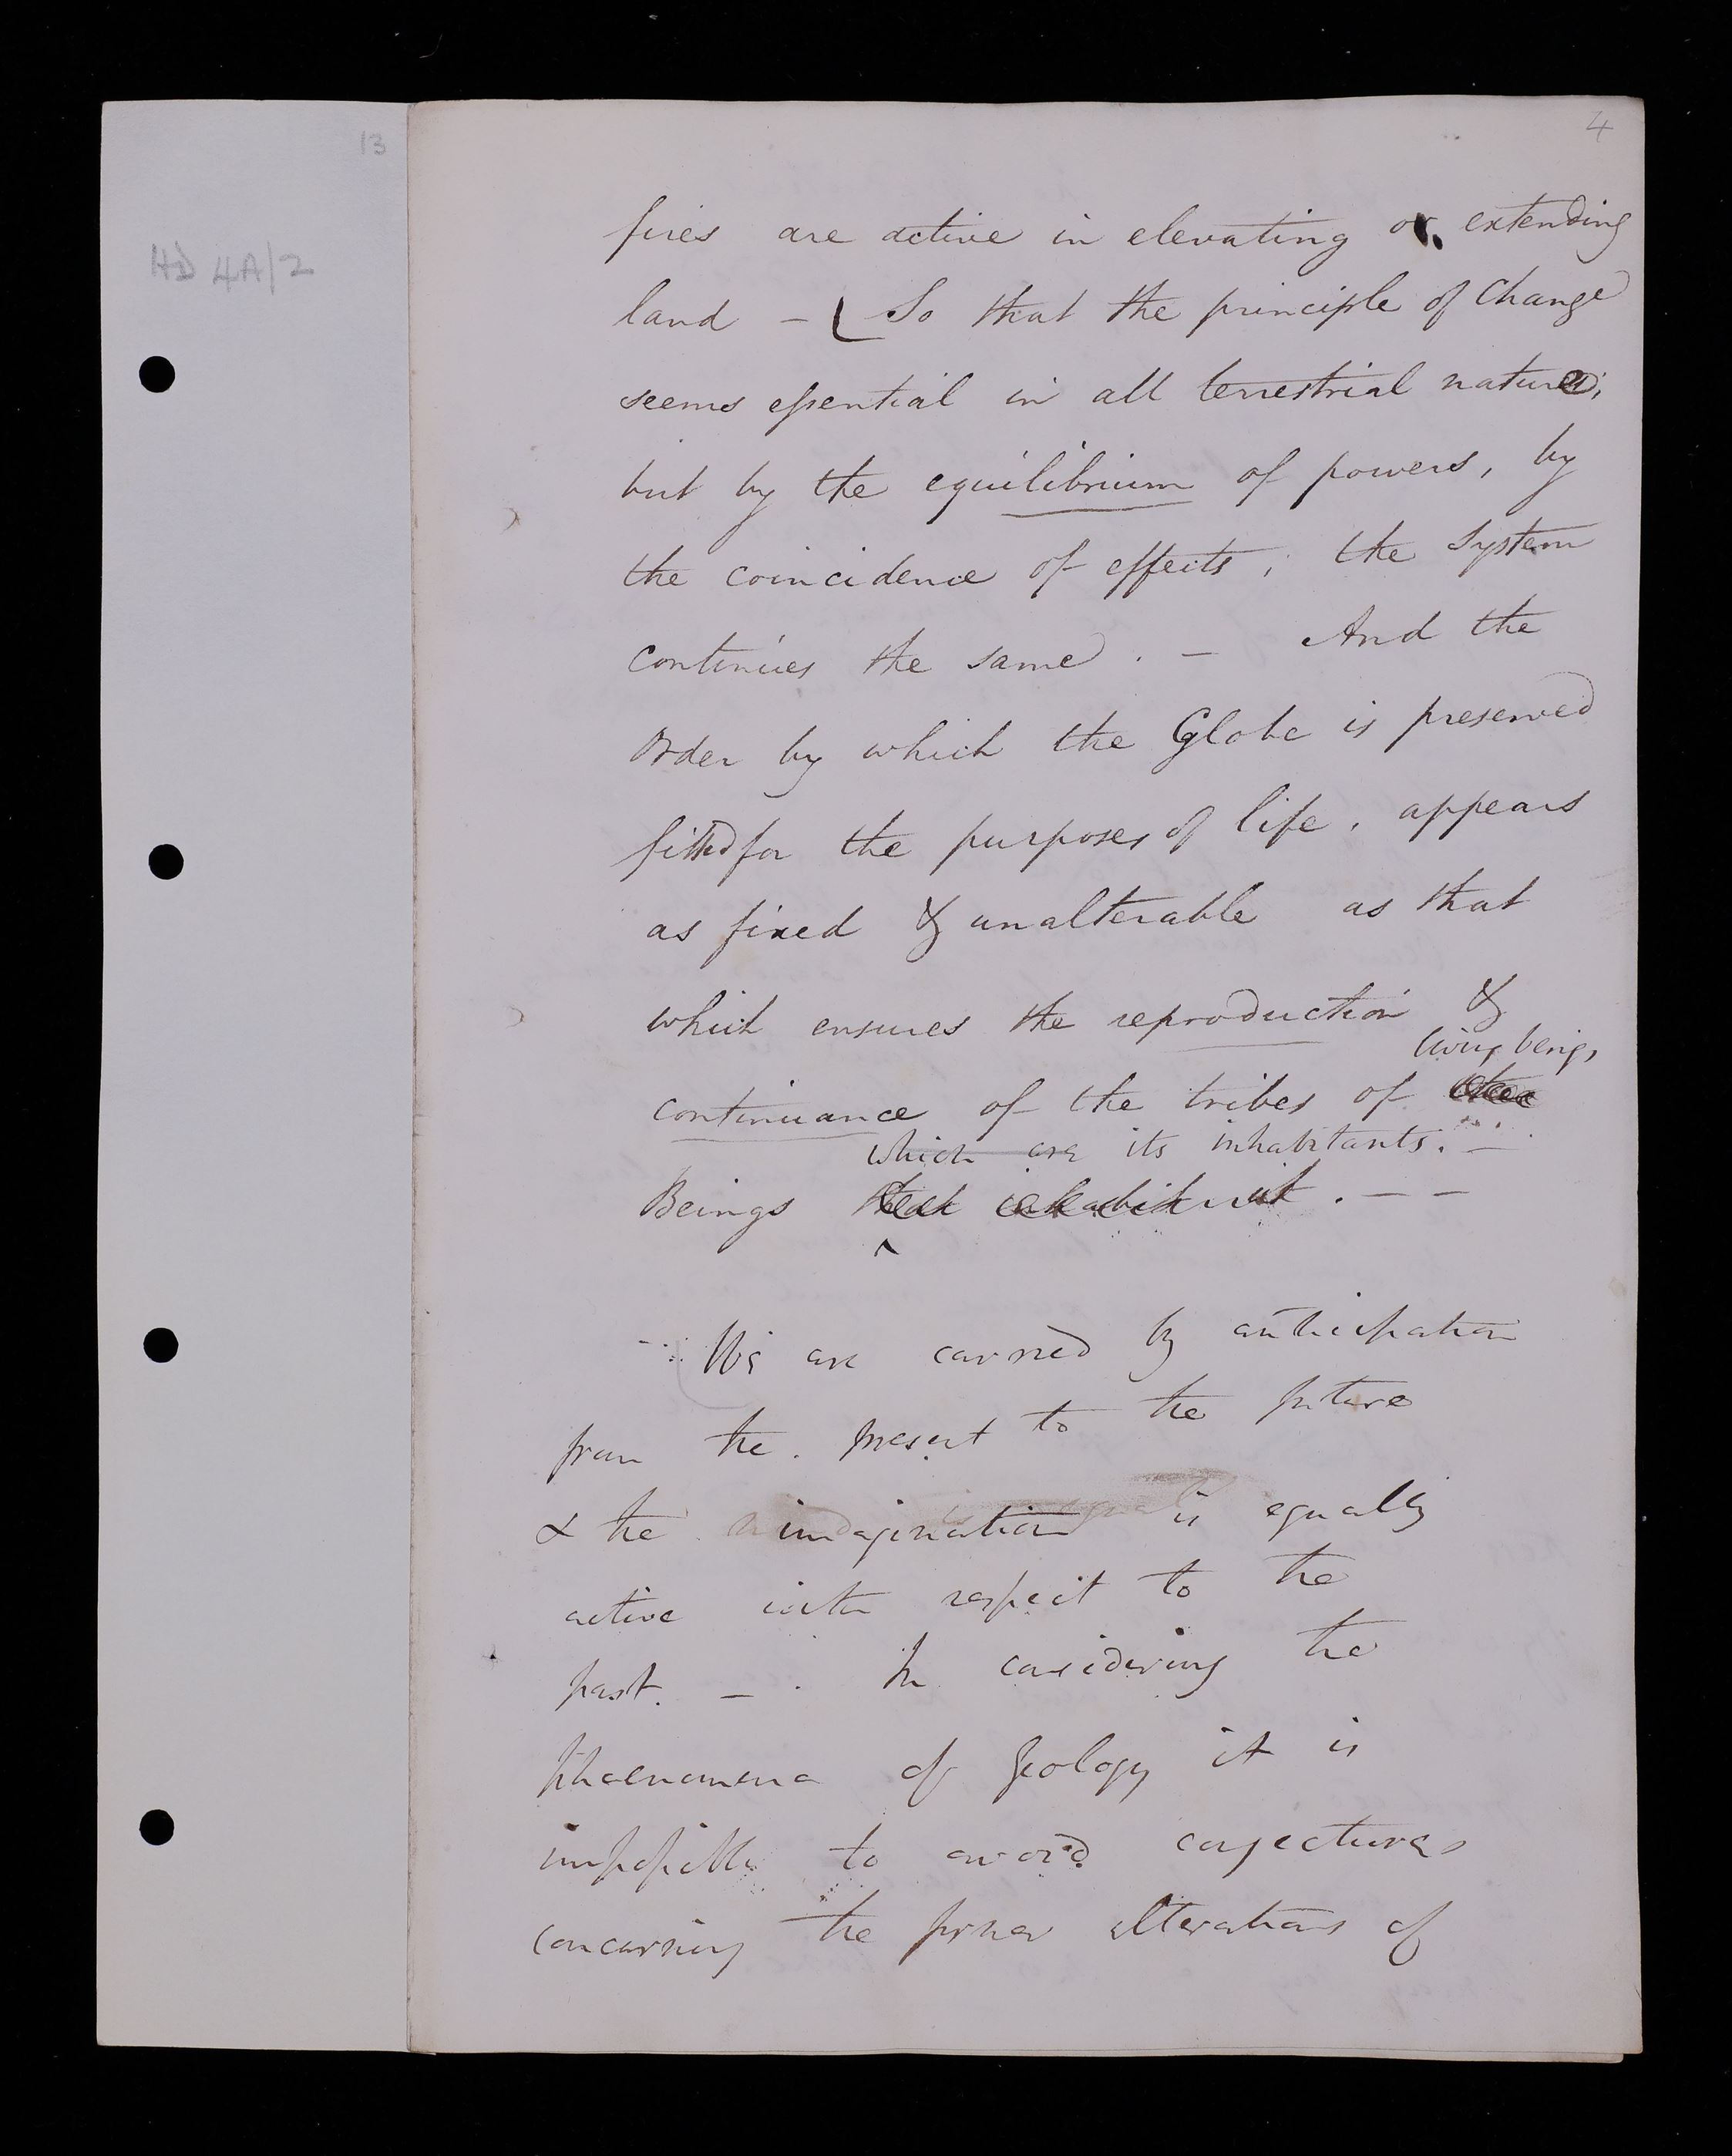 13
4
HD 4A/2
fires are active in elevating or extending
land - So that the principle of Change
seems essential in all terrestrial nature;
but by the equilibrium of powers, by
the coincidence of effects, the System
continues the same. - And the
Order by which the Globe is preserved
fitted for the purposes of life, appears
as fixed & unalterable as that
which ensures the reproduction &
living beings
continuance of the tribes of
which are its inhabitants. -
Beings that inhabit it. - -
We are carried by anticipation
from the present to the future
& the imagination is equally
active with respect to the
past. - In considering the
phaenomena of Geology it is
impossible to avoid conjectures
concerning the former alterations of